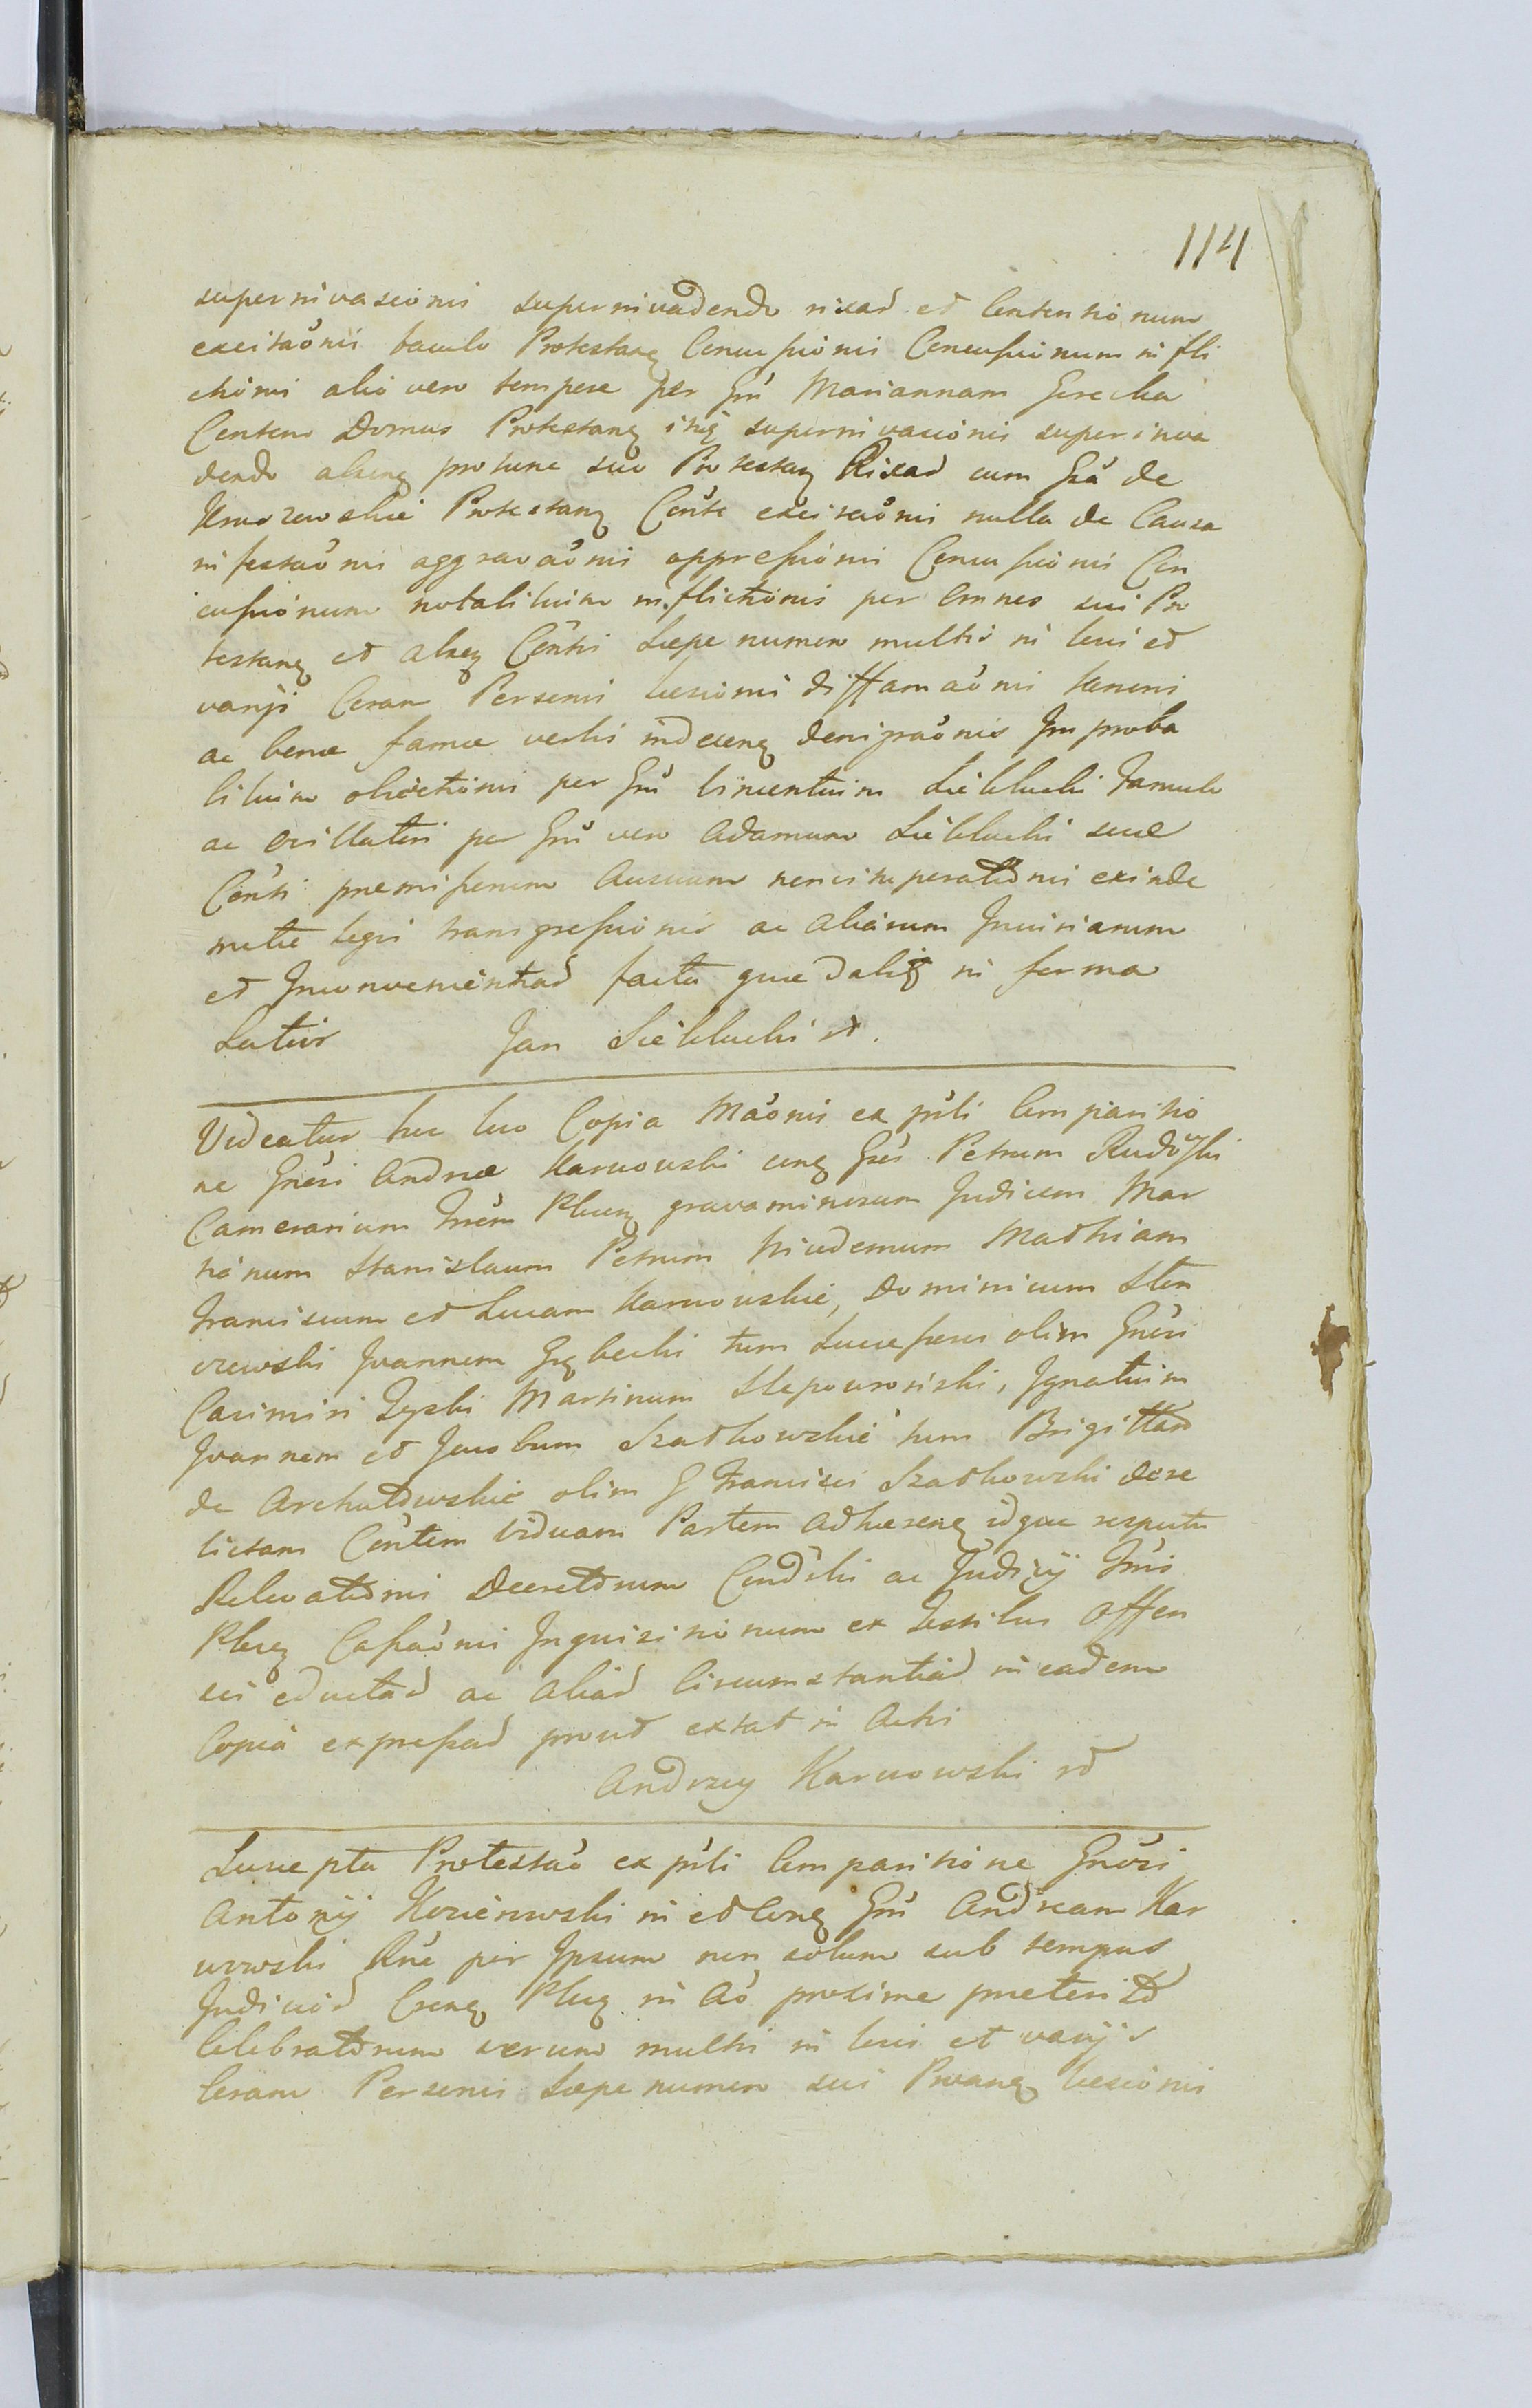 114
superinvasionis superinvadendo rixas et Contentionum
excitaõnis baculo Protestanq Concussionis Concussionum infli
ctionis alio vero tempore per Gñ Mariannam Gorecka
Contem Domus Protestanq itiq superinvasionis superinva
dendo absenq protunc suo Protestanq Rixas cum Gsã de
Protestanq Cõnte excitaõnis nulla de Causa
infestaõnis aggravaõnis oppressionis Concussionis Con
cussionum notabilium inflictionis per omnes sui Pro
testanq et absenq Cõntis saepe numero multis in locis et
varijs Coram Personis laesionis diffamaõnis honoris
ac bonae famae verbis indecenq denigraõnis Improba
bilium objectionis per Gñ Vincentium Siekłucki famulo
ac per Gñ vero Adamum Siekłucki suae
Cõnti praemissorum Ausuum exinde
metae legis transgressionis ac aliarum Injuriarum
et Inconvenientias facta quae dabitr in forma
Latius Jan Siekłucki
Videatur hic loco Copia Mãonis ex psli Comparitio
ne Gnësi Andreae Karwowski conq Gses Petrum Rudzki
Camerarium Trëm Plocenq gravaminosum Judicem Mar
tianum Stanislaum Petrum Mathiam
Franciscum et Lucam Karwowskie, Dominicum Ston
czewski Joannem Grębecki tum Successores olim Gnësi
Casimiri Zyski Martinum Slepowroński, Ignatium
Joannem et Jacobum Szadkowskie tum Brigittam
de Archutowskie olim G Francisci Szadkowski dere
lictam Cõntem Viduam Partem adhaerenq idque respectu
Relevationis Decretorum Condscli ac Judicij Tris
Plocenq Cassaõnis Inquisitionum ex Testibus Offen
sis eductas ac alias Circumstantias in eadem
Copia expressas prout extat in Actis
Andrzey Karwowski
Suscepta Protestaõ ex psli Comparitione Gnësi
Antonij Korzeniowski in et Conq Gñ Andream Kar
wowski Rne per Ipsum non solum sub tempus
Judicior Crenq Plocq in Aõ proxime praeterito
Celebratorum verum multis in locis et varijs
Coram Personis saepe numero sui Proanq laesionis